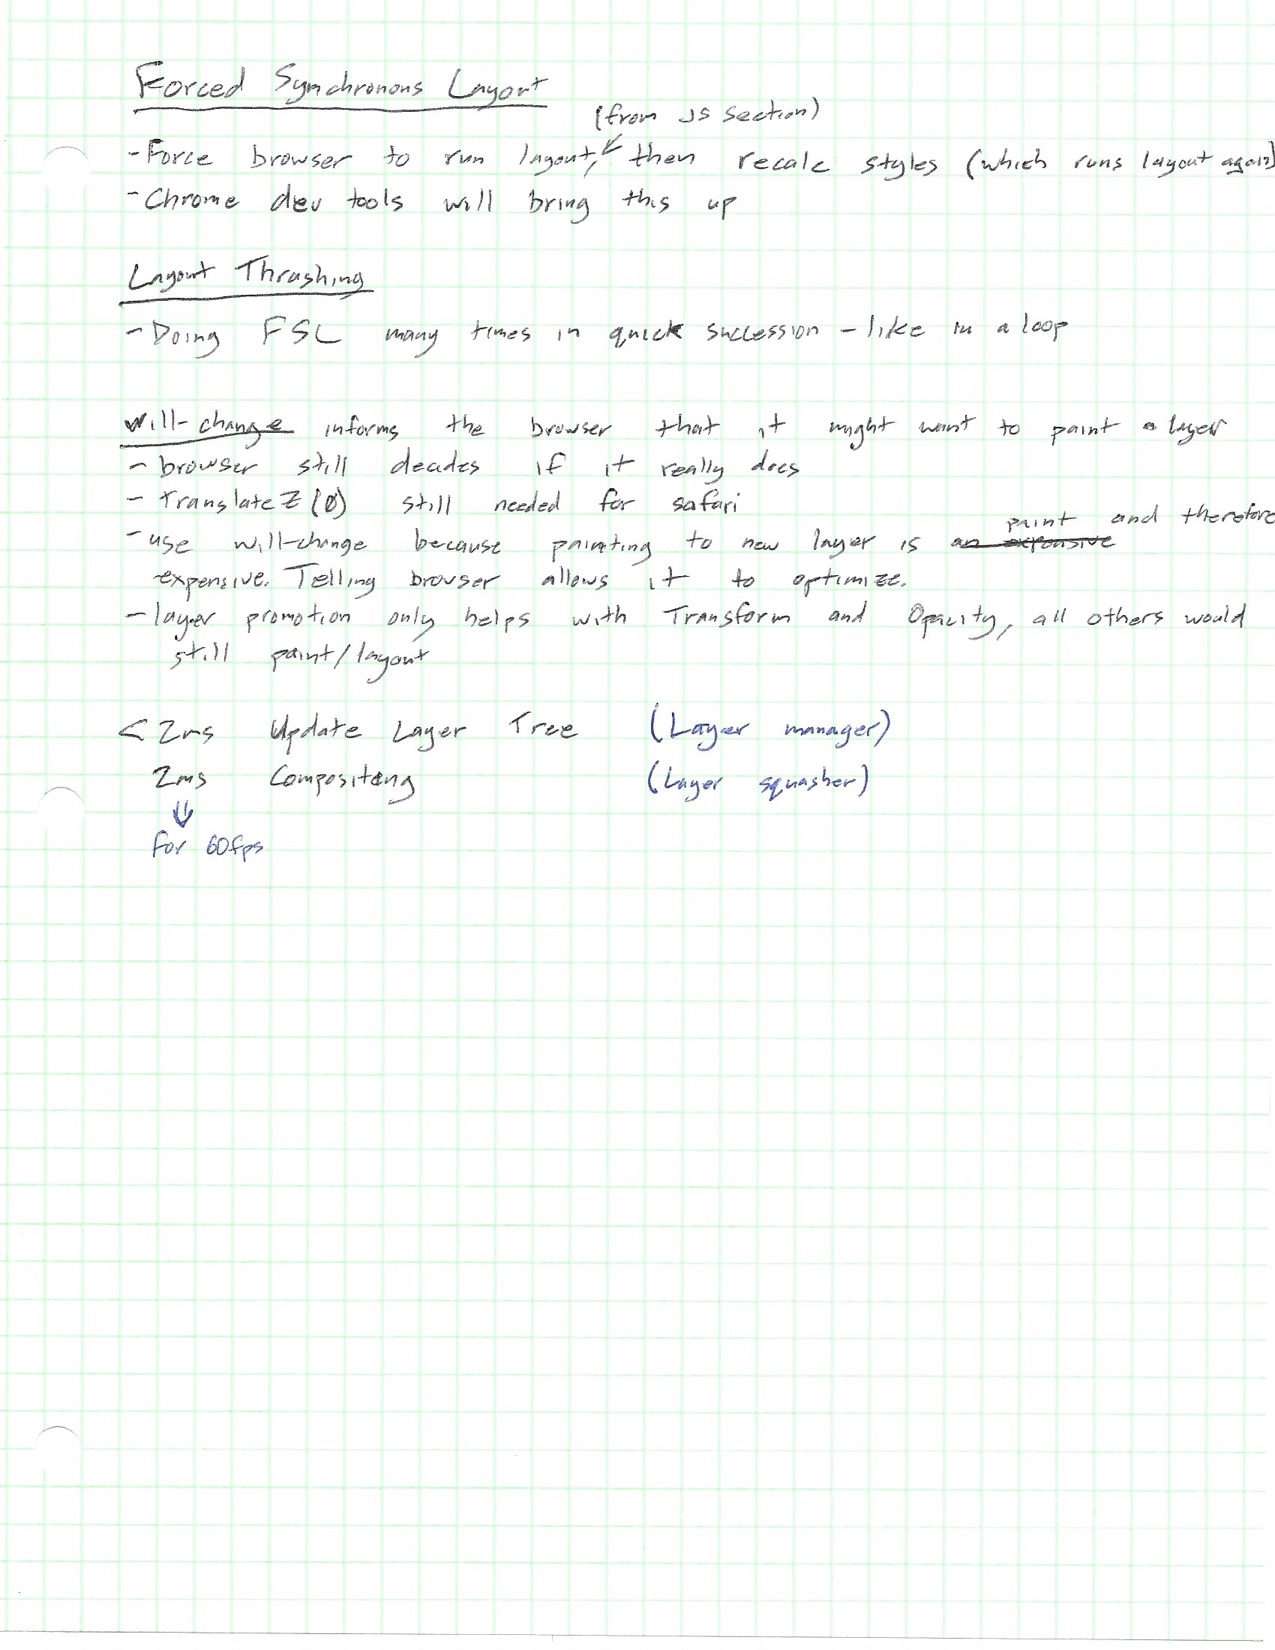 Forced Synchronous Layout
(from JS section)
- Force browser to run layout, then recalc styles (which runs layout again)
- Chrome dev tools will bring this up
Layout Thrashing
- Doing FSL many times in quick succession - like in a loop
will-change informs the browser that it might want to paint a layer
- browser still decides if it really does
- translateZ(0) still needed for safari
paint and therefore
- use will-change because painting to new layer is an expensive
expensive. Telling browser allows it to optimize.
- layer promotion only helps with Transform and Opacity, all others would
still paint/layout
< 2ms Update Layer Tree (Layer manager)
2ms Compositing (Layer squasher)
for 60fps